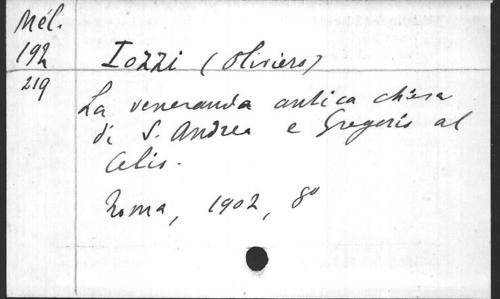 Mél.
192
219
Iozzi (Oliviero)
La veneranda antica chiesa
di S. Andrea e Gregorio al
Celio.
Roma, 1902, 8º